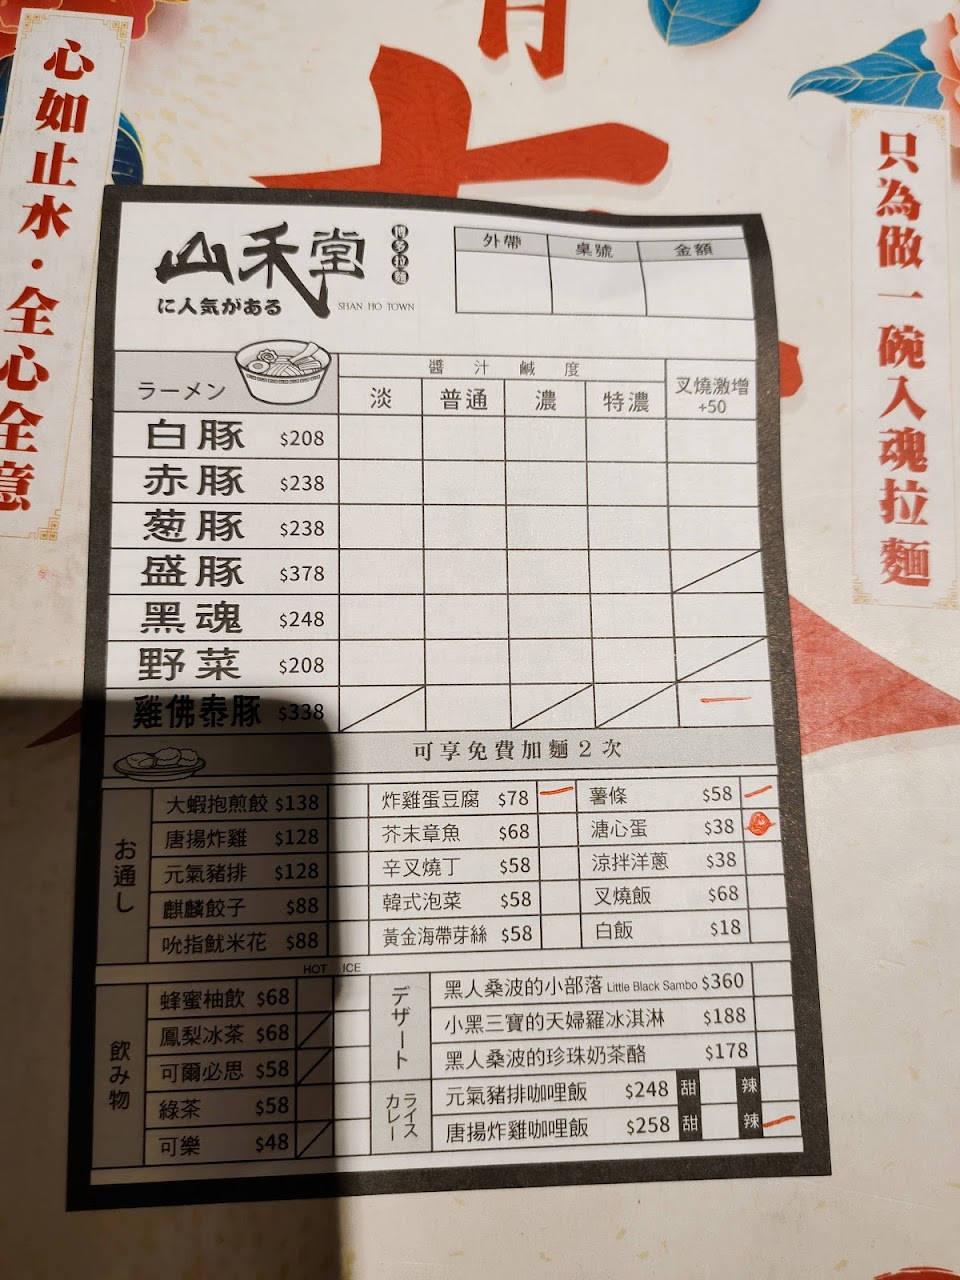 心如止水·全心全意
只為做一碗入魂拉麵
山禾堂
博多拉麵
に人気がある
SHAN HO TOWN
外帶 桌號 金額
ラーメン
醬汁鹹度
淡 普通 濃 特濃
叉燒激增
+50
白豚 $208
赤豚 $238
葱豚 $238
盛豚 $378
黑魂 $248
野菜 $208
雞佛泰豚 $338
可享免費加麵2次
お通し
大蝦抱煎餃 $138
唐揚炸雞 $128
元氣豬排 $128
麒麟餃子 $88
吮指魷米花 $88
炸雞蛋豆腐 $78
芥末章魚 $68
辛叉燒丁 $58
韓式泡菜 $58
黃金海帶芽絲 $58
薯條 $58
溏心蛋 $38
涼拌洋蔥 $38
叉燒飯 $68
白飯 $18
HOT ICE
飲み物
蜂蜜柚飲 $68
鳳梨冰茶 $68
可爾必思 $58
綠茶 $58
可樂 $48
デザート
黑人桑波的小部落 Little Black Sambo $360
小黑三寶的天婦羅冰淇淋 $188
黑人桑波的珍珠奶茶酪 $178
ライス
カレー
元氣豬排咖哩飯 $248 甜 辣
唐揚炸雞咖哩飯 $258 甜 辣